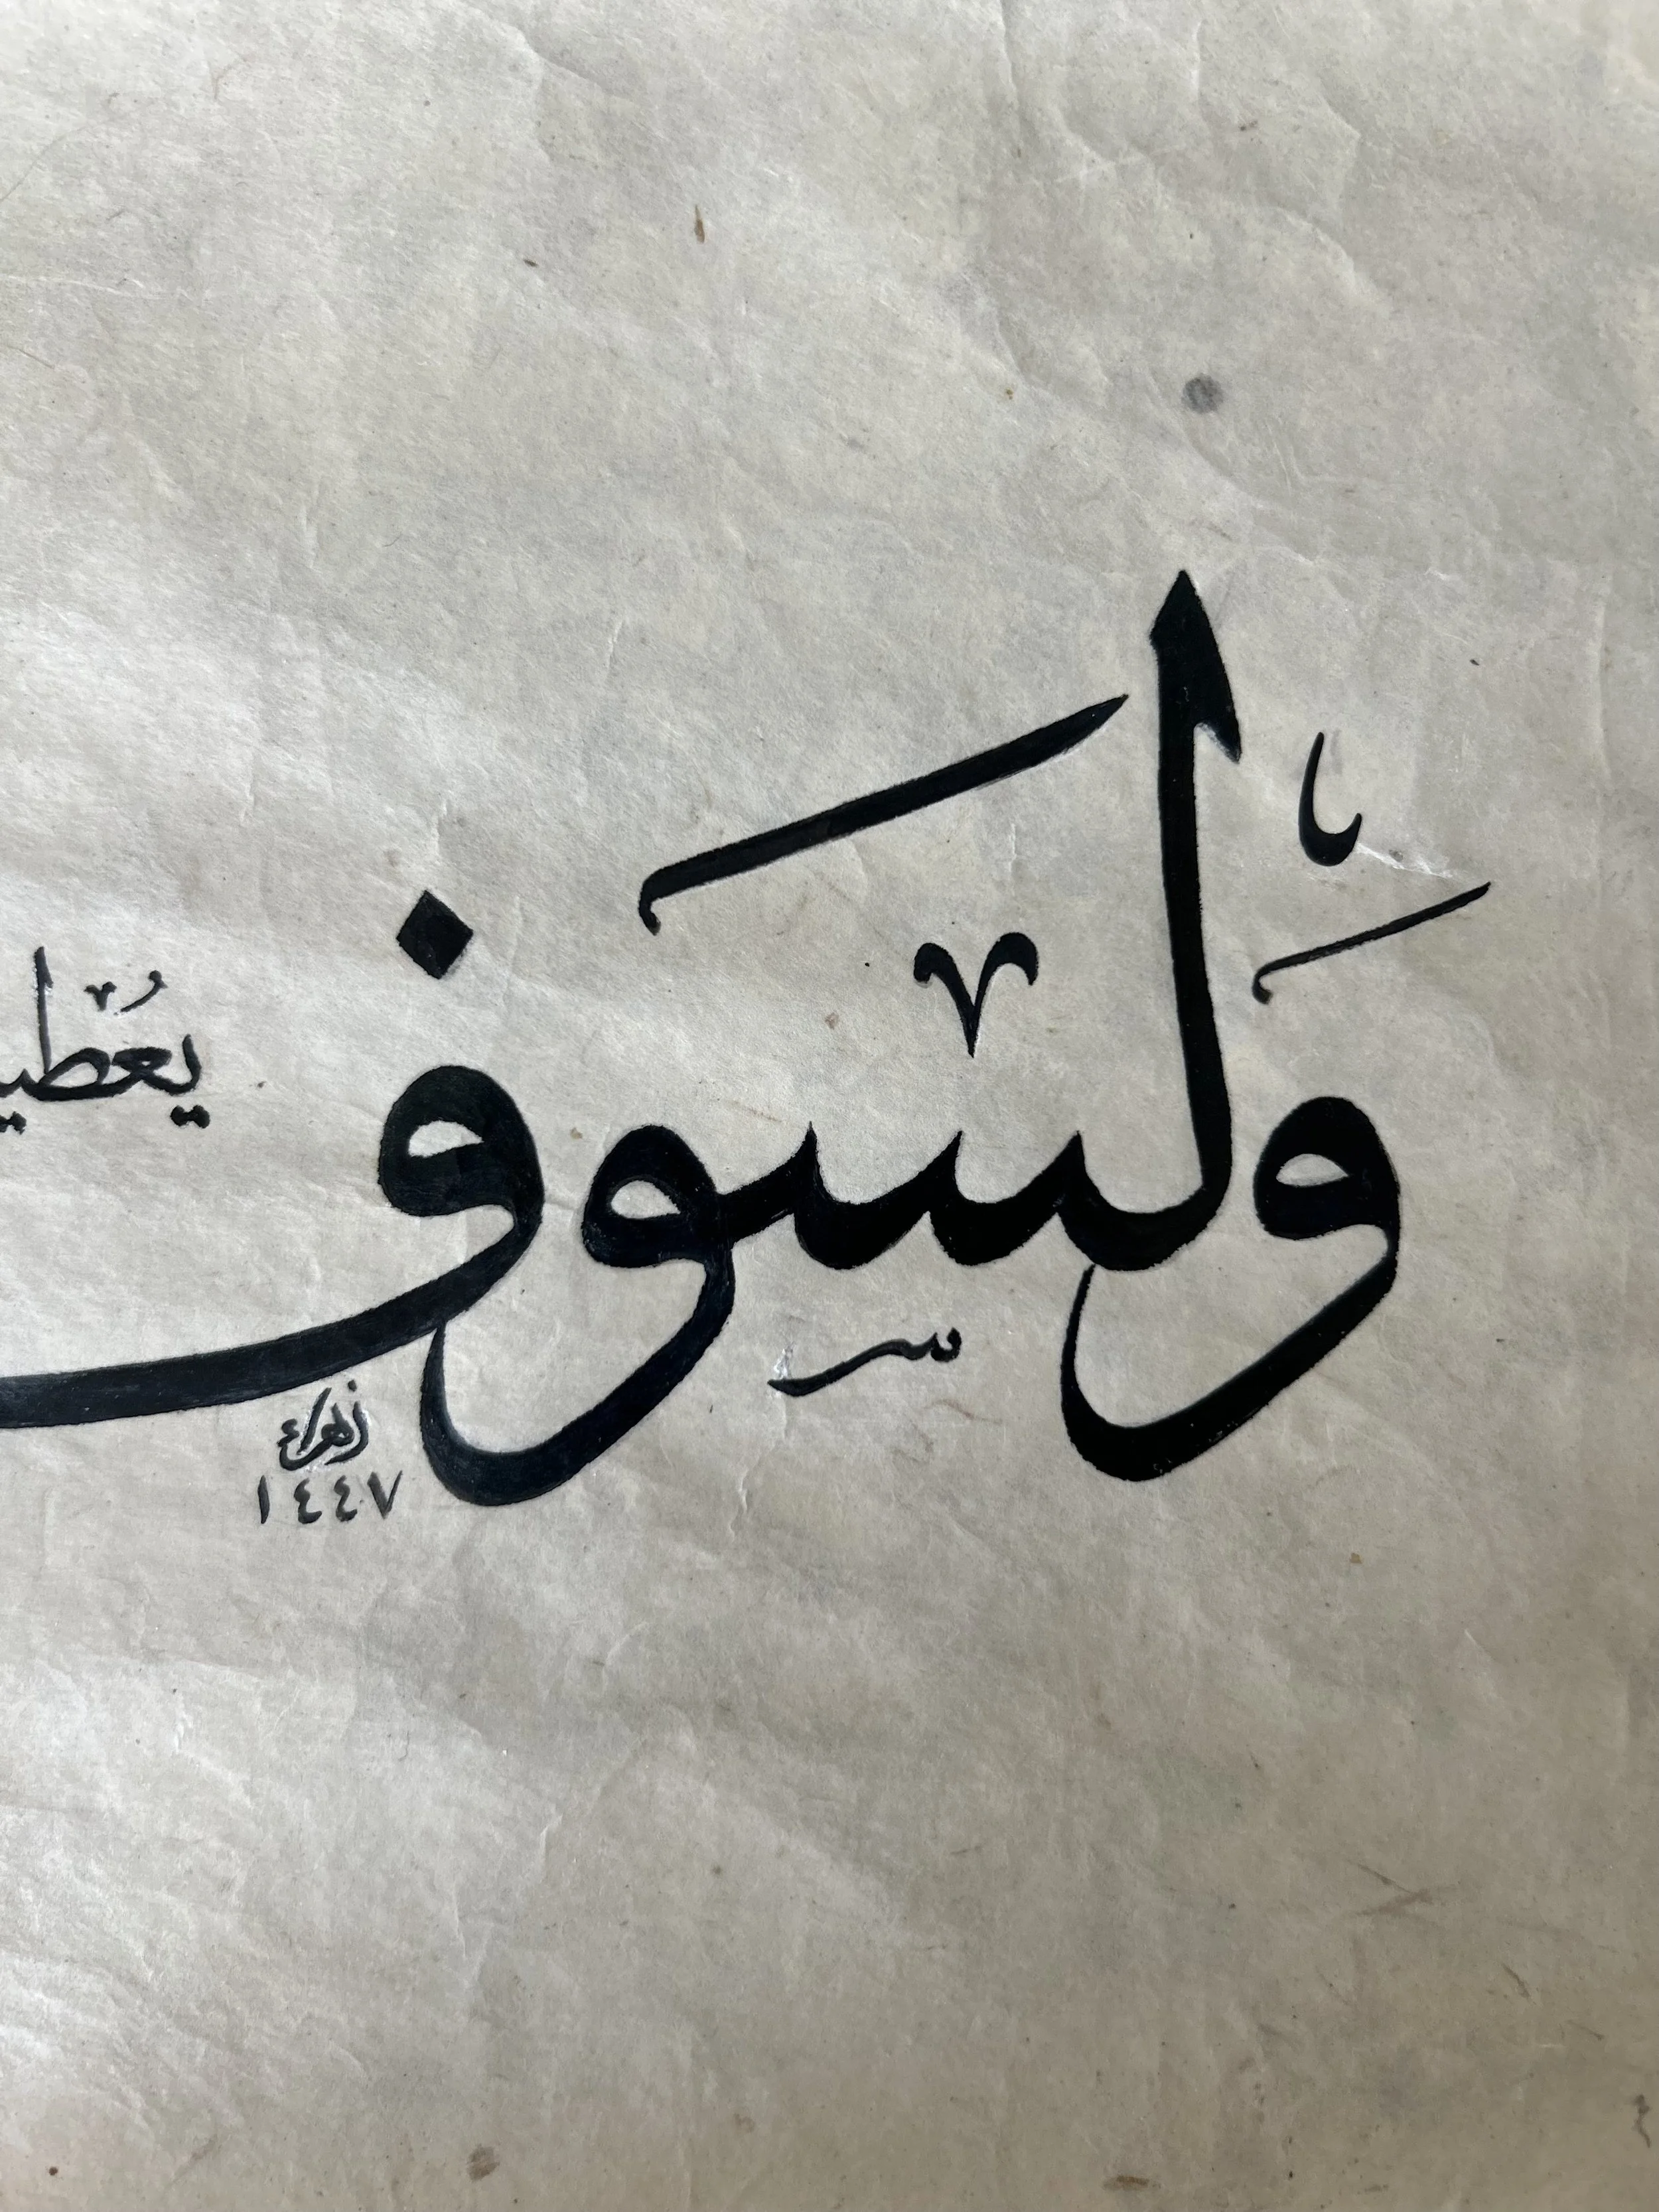 وَلَسَوف
يُعْطيـ
زهراء
١٤٤٧